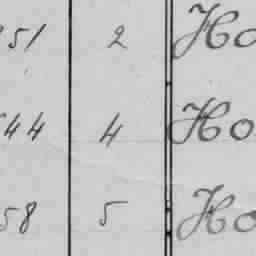 51 2 Ho
44 4 Ho
58 5 Ho